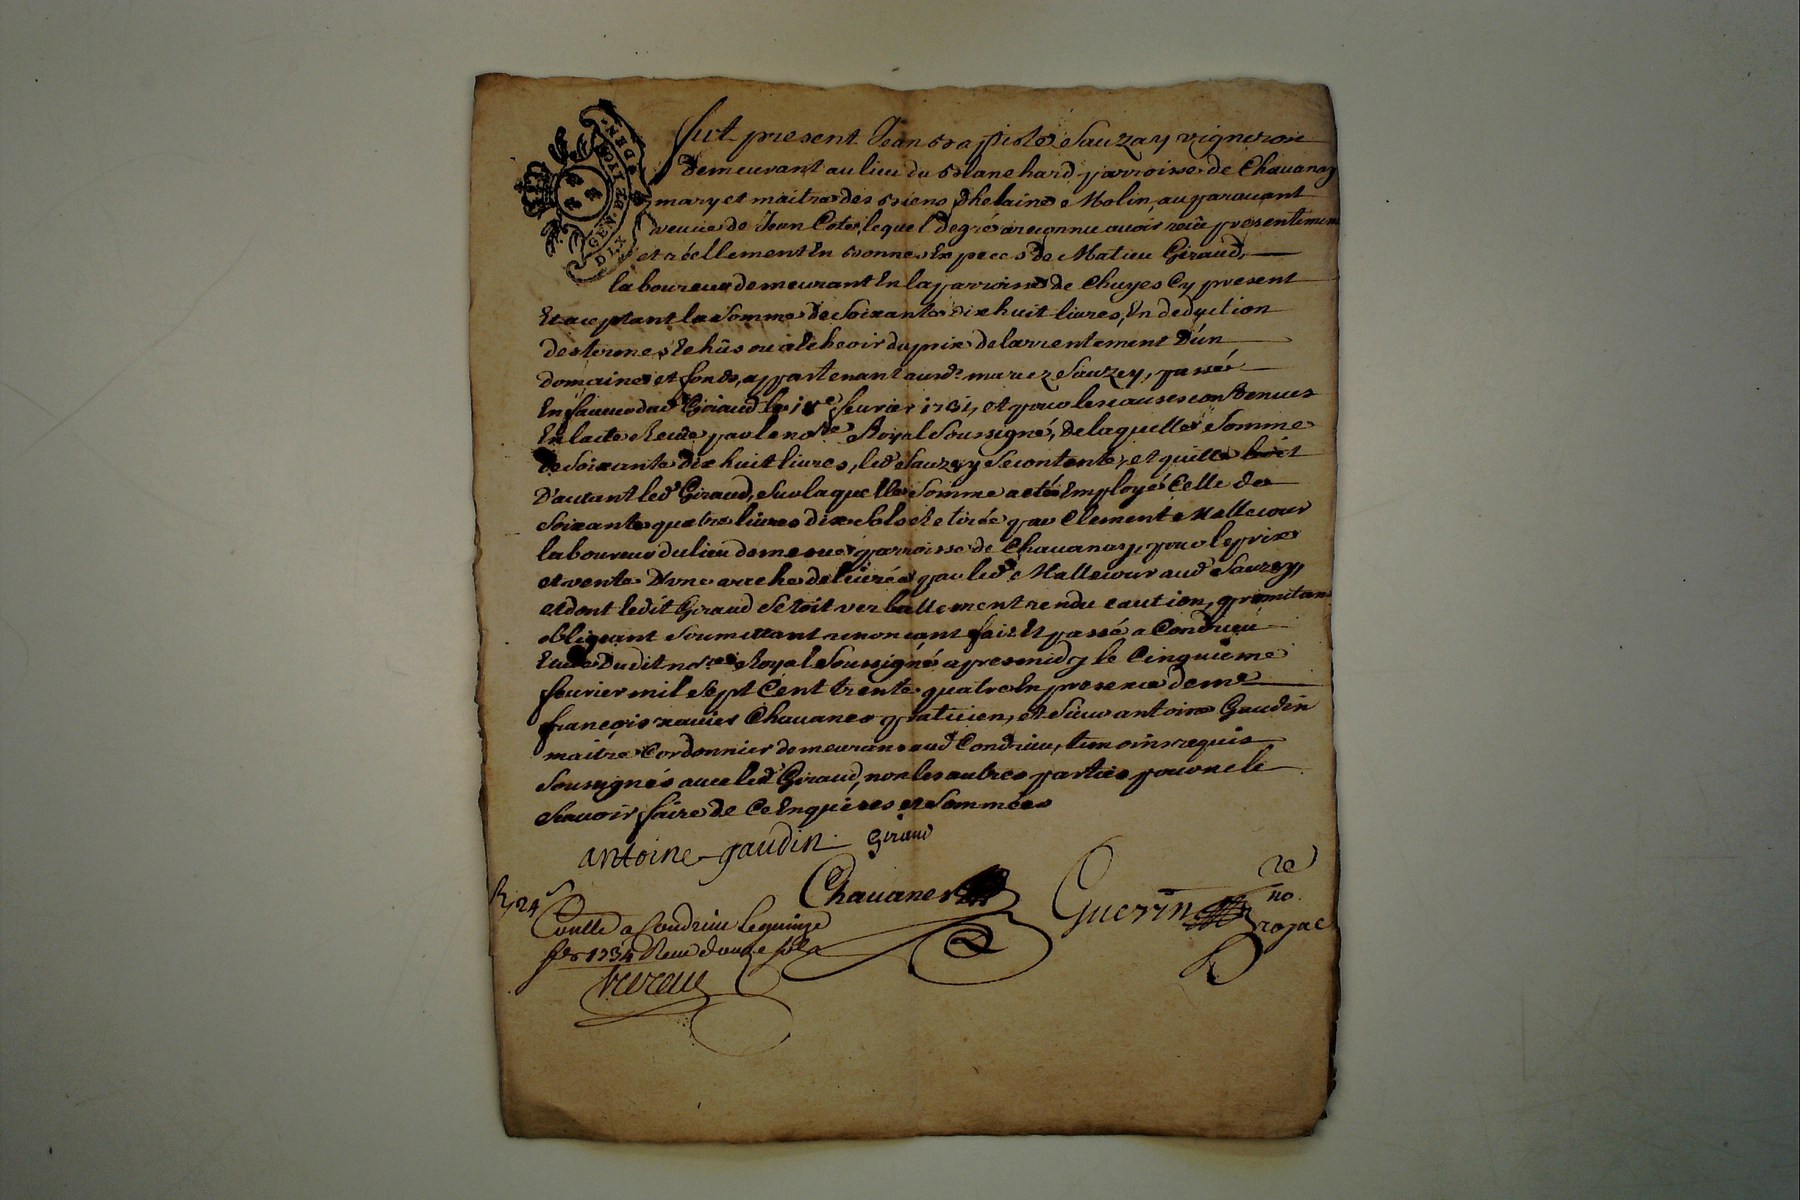 GEN. DE LYON
DIX DEN.
fut present Jean baptiste Sauzay vigneron
demeurant au lieu du blanchard parroisse de Chauanay
mary et maitre des biens dhelaine Molin, auparauant
veuue de Jean Cote, lequel de gré a reconnu auoir receu presentement
et réellement En bonnes Especes de Matieu Giraud,
laboureur demeurant En la parroisse de Chuyes Cy present
Et aceptant la Somme de Soixante dix huit liures, En deduction
des termes Echûs ou a Echeoir du prix de larrentement D'un
domaine et fonds, appartenant ausd. mariez Sauzey, passé
En faueur dud. Giraud le 18e feurier 1731, et pour les causes contenues
En lacte Receu par le nore Royal Soussigné, de laquelle Somme
de Soixante dix huit liures, led. Sauzey Se contente, et quitte
D'autant led. Giraud, Sur laquelle Somme a eté Employé Celle de
Soixante quatre liures dix Sols Retirée par Clement Mallecour
laboureur du lieu de parroisse de Chauanay, pour le prix
et vente D'une arche deliurée par led. Mallecour aud. Sauzey,
et dont ledit Giraud Setoit verballement rendu caution, promitant
obligeant Soumettant renonçant fait Et passé a Condrieu
Etude Dudit nore Royal Soussigné apresmidy le Cinquieme
feurier mil Sept Cent trente quatre En presence de me
françois xauier Chauanes praticien, et Sieur antoine Gaudin
maitre Cordonnier demeurans aud. Condrieu, temoins requis
Soussignés auec led. Giraud, non les autres parties pour ne le
Scauoir faire de Ce Enquises et Sommées
antoine gaudin Giraud
Chauanes Guerin
re
no
royal
R 24 s
Conlle a Condrieu le quinze
fer 1734 Receu douze sols